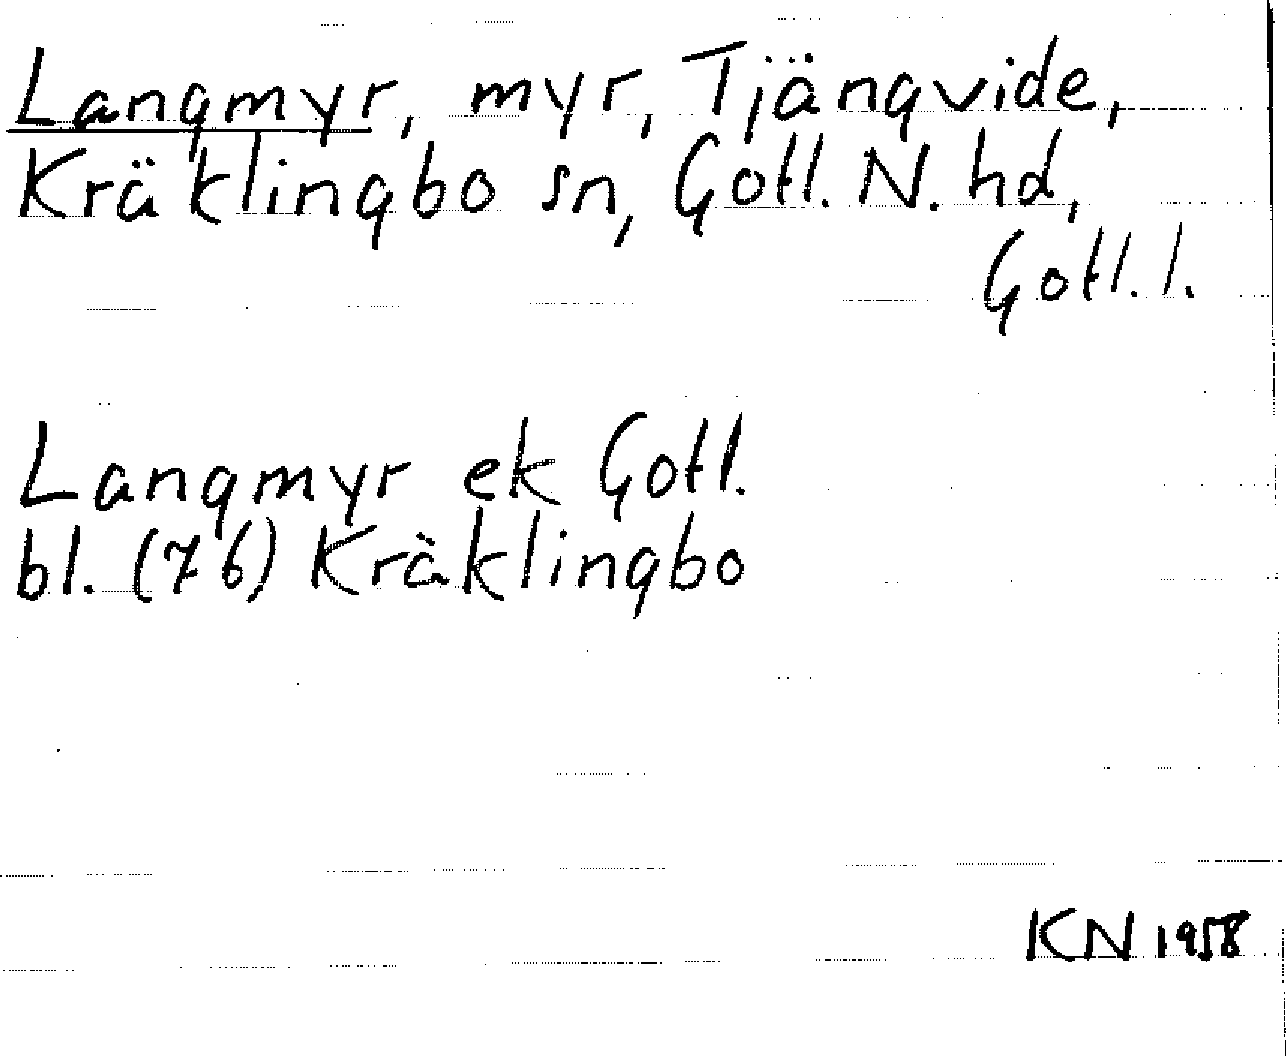 Langmyr, myr, Tjängvide,
Kräklingbo sn, Gotl. N. hd,
Gotl. l.
Langmyr ek Gotl.
bl. (76) Kräklingbo
KN 1958